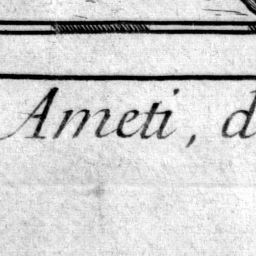 Ameti, d